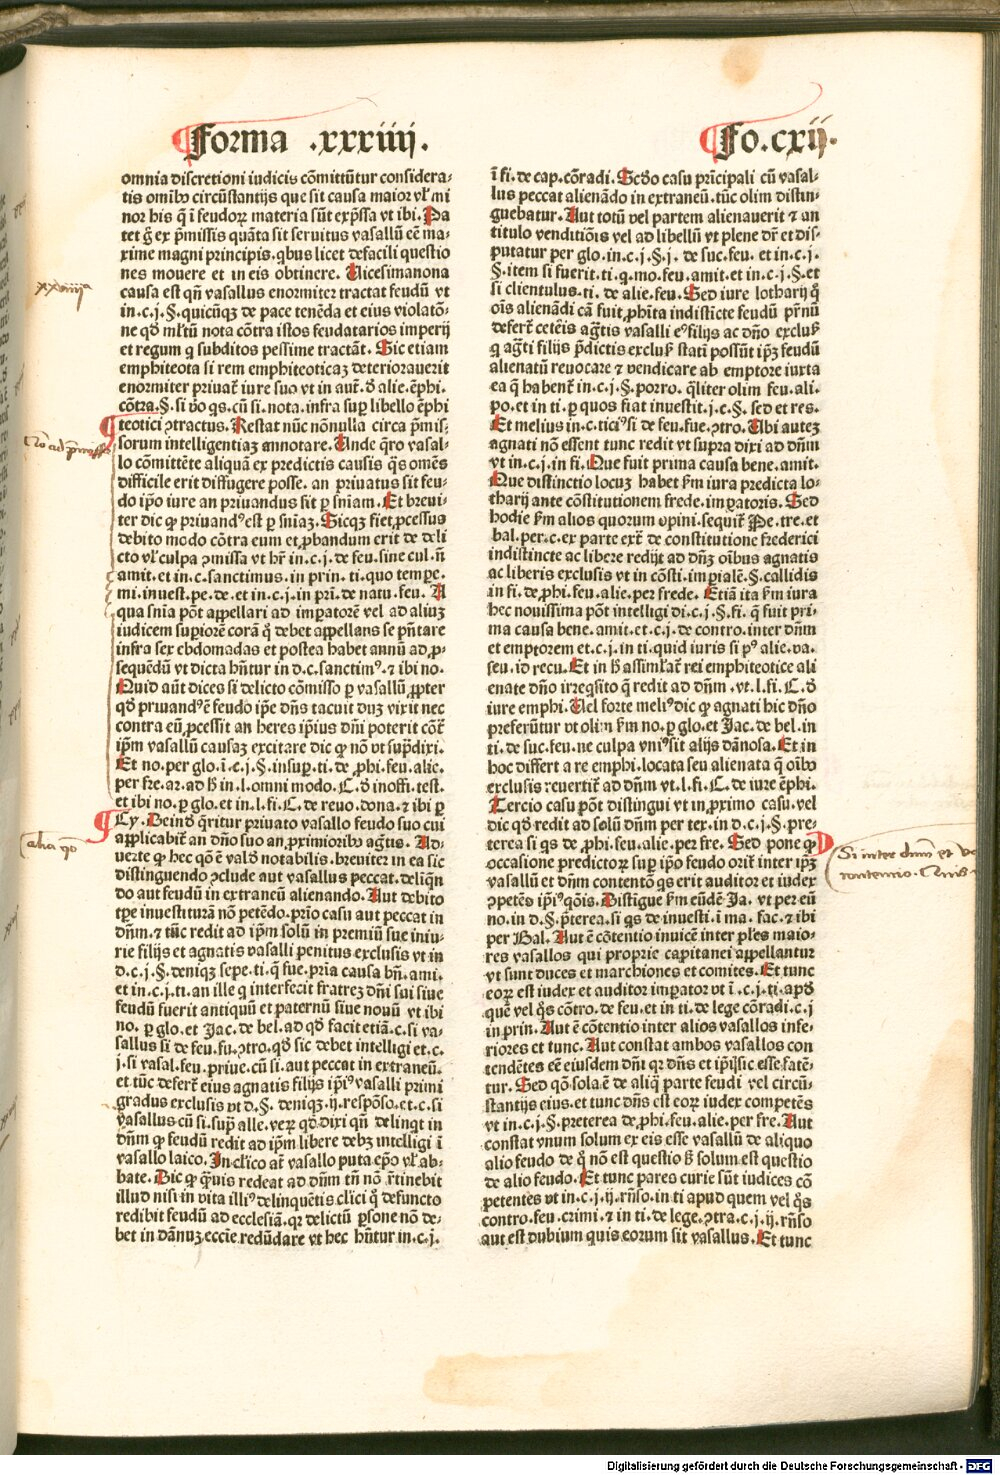 Forma .xxxiiij.
Fo.cxij.
omnia discretioni iudicis cõmittũtur considera-
tis omĩbꝰ circũstantijs que sit causa maior vł mi
nor his q̃ ĩ feudoꝝ materia sũt exp̃ssa vt ibi. Pa
tet g̃ ex p̃missis quãta sit seruitus vasallũ cẽ ma-
xime magni principis.qbus licet defacili questio
nes mouere et in eis obtinere. Uicesimanona
causa est qñ vasallus enormiter tractat feudũ vt
in.c.j.§.quicũqꝫ de pace tenẽda et eius violatõ-
ne qđ mltũ nota cõtra istos feudatarios imperij
et regum q subditos pessime tractãt. Sic etiam
emphiteota si rem emphiteoticaꝫ deteriorauerit
enormiter priuat̃ iure suo vt in aut̃.đ alie.ẽphi.
cõtra.§.si ṽo qs.cũ si.nota.infra sup̱ libello ẽphi
teotici ꝯtractus. Restat nũc nõnulla circa p̃mis-
sorum intelligentiaꝫ annotare. Unde q̃ro vasal-
lo cõmittẽte aliquã ex predictis causis q̃s omẽs
difficile erit diffugere posse. an priuatus sit feu-
do ip̃o iure an priuandus sit ꝑ sñiam. Et breui-
ter dic ꝙ priuandꝰ est ꝑ sñiaꝫ. Sicqꝫ fiet ꝓcessus
debito modo cõtra eum et ꝓbandum erit de deli
cto vł culpa ꝯmissa vt hr̃ in.c.j.de feu.sine cul.ñ
amit.et in.c.sanctimus.in prin.ti.quo tempe.
mi.inuest.pe.de.et in.c.j.in pri.de natu.feu. A
qua snĩa põt appellari ad imperatorẽ vel ad aliuꝫ
iudicem supiorẽ corã q̊ debet appellans se pñtare
infra sex ebdomadas et postea habet annũ ad ꝓ-
sequẽdũ vt dicta hñtur in d.c.sanctimꝰ.⁊ ibi no.
Quid aũt dices si delicto cõmisso ꝑ vasallũ ꝓpter
qđ priuandꝰ ẽ feudo ipe dñs tacuit duꝫ vixit nec
contra eũ ꝓcessit an heres ip̃ius dñi poterit cõtr̃
ip̃m vasallũ causaꝫ excitare dic ꝙ nõ vt sup̃dixi.
Et no.per glo.ĩ.c.j.§.insup̱.ti.de ꝓhi.feu.alie.
per fre.ar.ad h̃ in.l.omni modo.C.đ inoffi.test.
et ibi no.ꝑ glo.et in.l.fi.C.de reuo.dona.⁊ ibi ꝑ
Cy. Deinđ q̃ritur priuato vasallo feudo suo cui
applicabit̃ an dño suo an ꝓximioribꝰ agt̃us. Ad-
uerte ꝙ hec qõ ẽ valđ notabilis.breuiter in ea sic
distinguendo ꝯclude aut vasallus peccat.deliq̃n
do aut feudũ in extraneũ alienando. Aut debito
tp̃e inuestiturã nõ petẽdo.prĩo casu aut peccat in
dñm.⁊ tũc redit ad ip̃m solũ in premiũ sue iniu-
rie filijs et agnatis vasalli penitus exclusis vt in
d.c.j.§.deniqꝫ sepe.ti.q̃ fue.pria causa bñ.ami.
et in.c.j.ti.an ille q interfecit fratreꝫ dñi sui siue
feudũ fuerit antiquũ et paternũ siue nouũ vt ibi
no.ꝑ glo.et Jac.de bel.ad qđ facit etiã.c.si va-
sallus si de feu.fu.ꝯtro.qđ sic debet intelligi et.c.
j.si vasal.feu.priue.cũ si.aut peccat in extraneũ.
et tũc defert̃ eius agnatis filijs ip̃iꝰ vasalli primi
gradus exclusis vt d.§.deniqꝫ.ij.respõso.et.c.si
vasallus cũ si.sup̃ alle.veꝝ qđ dixi qñ delinqt in
dñm ꝙ feudũ redit ad ip̃m libere debꝫ intelligi ĩ
vasallo laico. In cłico at̃ vasallo puta ep̃o vł ab-
bate. Dic ꝙ q̃uis redeat ad dñm tñ nõ r̃tinebit
illud nisi in vita illiꝰ delinquẽtis cłici q̃ defuncto
redibit feudũ ad ecclesiã.qꝛ delictũ p̱sone nõ de-
bet in dãnuꝫ ecc̃ie redũdare vt hec hñtur in.c.j.
ĩ fi.de cap.cõradi. Scđo casu prĩcipali cũ vasal-
lus peccat alienãdo in extraneũ.tũc olim distin-
guebatur. Aut totũ vel partem alienauerit ⁊ an
titulo venditiõis vel ad libellũ vt plene dr̃ et dis-
putatur per glo.in.c.j.§.j.de suc.feu. et in.c.j.
§.item si fuerit.ti.q.mo.feu.amit.et in.c.j.§.et
si clientulus.ti.de alie.feu. Sed iure lotharij q̊
oĩs alienãdi cã fuit ꝓhĩta indisticte feudũ pr̃nũ
defert̃ ceteis ag̃tis vasalli eꝰ filijs ac dño exclus̃
q ag̃ti filijs p̃dictis exclus̃ statĩ possũt ip̃ꝫ feudũ
alienatũ reuocare ⁊ vendicare ab emptore iuxta
ea q̃ habent̃ in.c.j.§.porro.qłiter olim feu.ali.
po.et in ti.ꝑ quos fiat inuestit.j.c.§.sed et res.
Et melius in.c.ticiꝰ si de feu.fue.ꝯtro. Ubi auteꝫ
agnati nõ essent tunc redit vt supra dixi ad dñm
vt in.c.j.in fi. Que fuit prima causa bene.amit.
Que distinctio locuꝫ habet s̃m iura predicta lo-
tharij ante cõstitutionem frede.impatoris. Sed
hodie s̃m alios quorum opini.sequit̃ Pe.tre.et
bal.per.c.ex parte ext̃ de constitutione frederici
indistincte ac libere redijt ad dñꝫ oĩbus agnatis
ac liberis exclusis vt in cõsti.impialẽ.§.callidis
in fi.de ꝓhi.feu.alie.per frede. Etiã ita s̃m iura
hec nouissima põt intelligi di.c.j.§.fi.q̃ fuit pri-
ma causa bene.amit.et.c.j.de contro.inter dñm
et emptorem et.c.j.in ti.quid iuris si pꝰ alie.va.
feu.id recu. Et in h̃ assimlat̃ rei emphiteotice ali
enate dño irreq̃sito q̃ redit ad dñm.vt.l.fi.C.đ
iure emphi. Uel forte meliꝰ dic ꝙ agnati hic dño
preferũtur vt olim s̃m no.ꝑ glo.et Jac.de bel.in
ti.de suc.feu.ne culpa vniꝰ sit alijs dãnosa. Et in
hoc differt a re emphi.locata seu alienata q̃ oĩbꝰ
exclusis reuertit̃ ad dñm vt.l.fi.C.de iure ẽphi.
Tercio casu põt distingui vt in ꝓximo casu.vel
dic qđ redit ad solũ dñm per tex.in d.c.j.§.pre-
terea si qs de ꝓhi.feu.alie.per fre. Sed pone ꝙ
occasione predictoꝝ sup̱ ip̃o feudo orit̃ inter ip̃ꝫ
vasallũ et dñm contentõ qs erit auditor et iudex
ꝯpetẽs ip̃iꝰ qõis. Distigue s̃m eũdẽ Ja. vt per eũ
no.in d.§.p̃terea.si qs de inuesti.ĩ ma. fac.⁊ ibi
per Bal. Aut ẽ cõtentio inuicẽ inter ples maio-
res vasallos qui proprie capitanei appellantur
vt sunt duces et marchiones et comites. Et tunc
eoꝝ est iudex et auditor impator vt ĩ.c.j.ti.apđ
quẽ vel q̃s cõtro.de feu.et in ti.de lege cõradi.c.j
in prin. Aut ẽ cõtentio inter alios vasallos infe-
riores et tunc. Aut constat ambos vasallos con
tendẽtes eẽ eiusdem dñi qꝛ dñs et ip̃ijsic esse fatẽ-
tur. Sed qõ sola ẽ de aliq̃ parte feudi vel circũ-
stantijs eius.et tunc dñs est eoꝝ iudex competẽs
vt in.c.j.§.preterea de ꝓhi.feu.alie.per fre. Aut
constat vnum solum ex eis esse vasallũ de aliquo
alio feudo de q̊ nõ est questio s̃ solum est questio
de alio feudo. Et tunc pares curie sũt iudices cõ
petentes vt in.c.j.ij.rñso.in ti apud quem vel q̃s
contro.feu.crimi.⁊ in ti.de lege.ꝯtra.c.j.ij.rñso
aut est dubium quis eorum sit vasallus. Et tunc
alia qõ
Si inter dnm̃ et
Digitalisierung gefördert durch die Deutsche Forschungsgemeinschaft - DFG